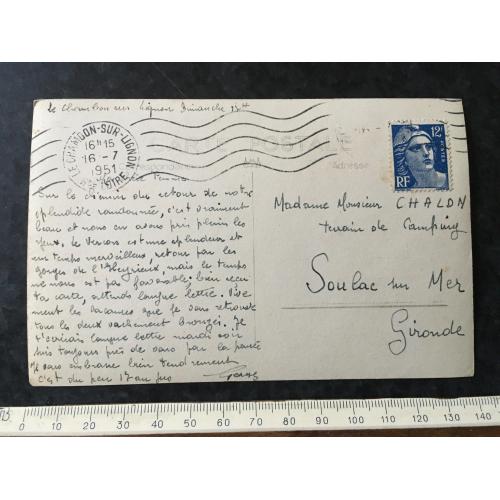 Le Chambon sur Lignon Dimanche
LE CHAMBON-SUR-LIGNON
16H15
16-7
1951
LOIRE
CARTE POSTALE
Correspondance
Adresse
12F
POSTES
RF
Sur le chemin du retour de notre
splendide randonnée, c'est vraiment
beau et nous en avons pris plein les
yeux. le Vercors est une splendeur et
un temps merveilleux, retour par les
gorges de mais le temps
ne nous est pas favorable. bien reçu
ta carte, attends longue lettre. Vive-
ment les vacances que je vous retrouve
tous les deux vachement bronzés. Je
t'écrirai longue lettre mardi soir
suis toujours près de vous par la pensée
Je vous embrasse bien tendrement
c'est du peu
Madame Monsieur CHALON
terrain de Camping
Soulac sur Mer
Gironde
0 10 20 30 40 50 60 70 80 90 100 110 120 130